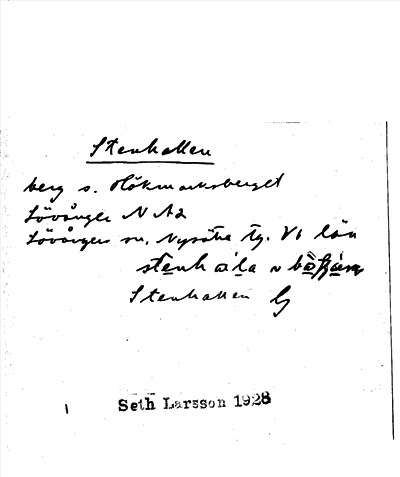 Stenhallen
berg s. Hökmarksberget
Lövånger N A2
Lövångers sn, Nysätra tg. Vb län
stenhala
Stenhallen G
Seth Larsson 1928